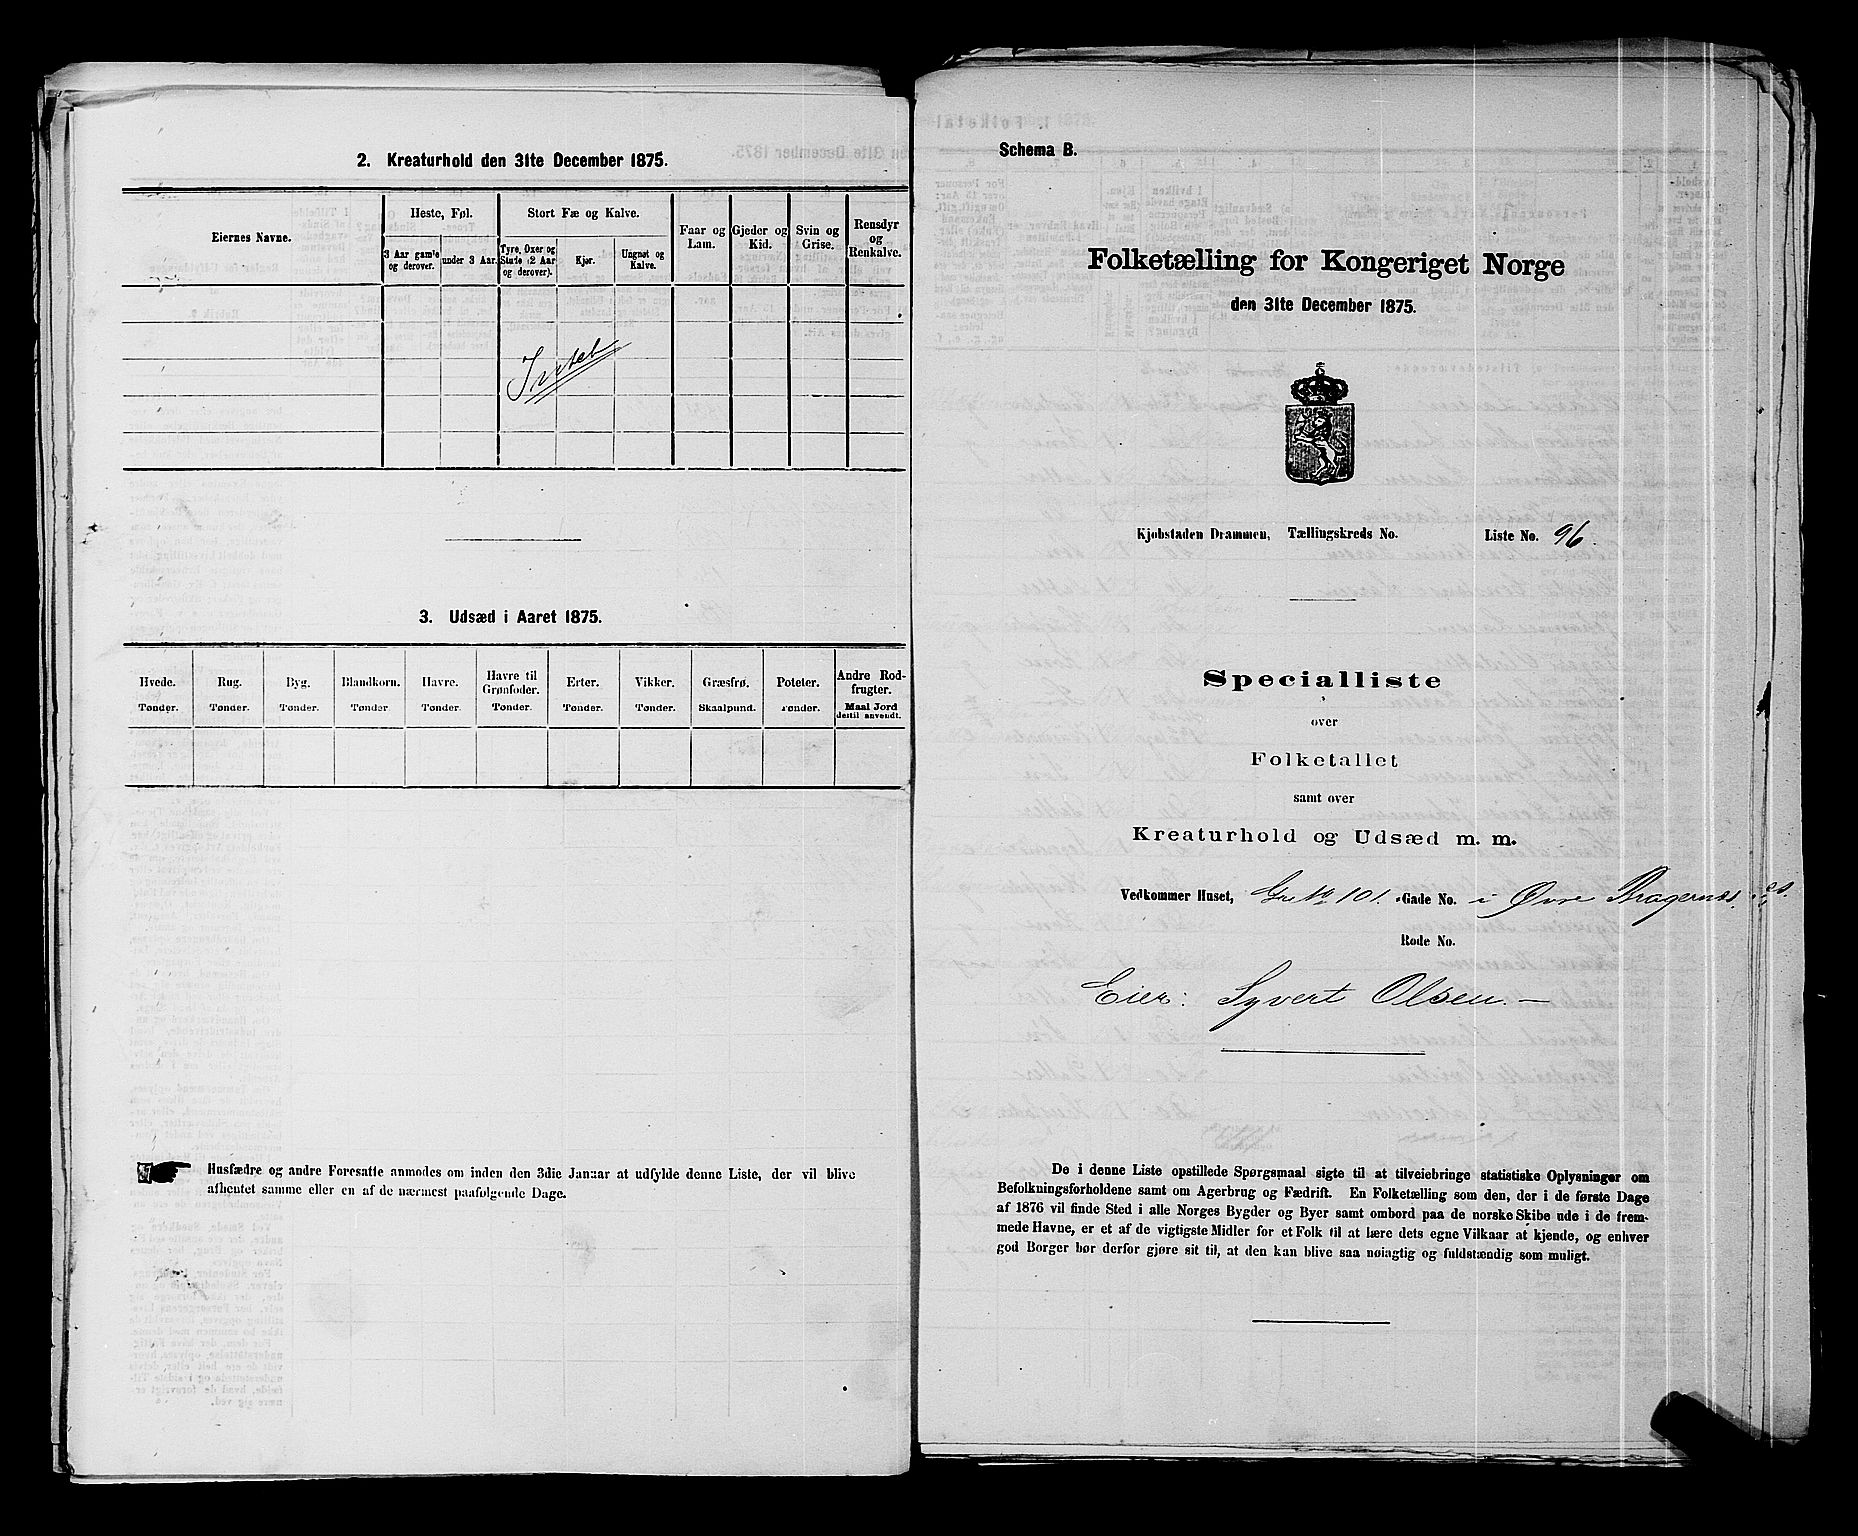 2. Kreaturhold den 31te December 1875.
Eiernes Navne.
Heste, Føl.
Stort Fæ og Kalve.
Faar og Lam.
Gjeder og Kid.
Svin og Grise.
Rensdyr og Renkalve.
3 Aar gamle og derover.
under 3 Aar.
Tyre, Oxer og Stude (2 Aar og derover).
Kjør.
Ungnøt og Kalve.
Intet
3. Udsæd i Aaret 1875.
Hvede. Rug. Byg. Blandkorn. Havre. Havre til Grønfoder. Erter. Vikker. Græsfrø. Poteter. Andre Rodfrugter.
Tønder. Tønder. Tønder. Tønder. Tønder. Tønder. Tønder. Tønder. Skaalpund. Tønder. Maal Jord dertil anvendt.
Husfædre og andre Foresatte anmodes om inden den 3die Januar at udfylde denne Liste, der vil blive
afhentet samme eller en af de nærmest paafølgende Dage.
Schema B.
Folketælling for Kongeriget Norge
den 31te December 1875.
Kjøbstaden Drammen, Tællingskreds No. Liste No. 96.
Specialliste
over
Folketallet
samt over
Kreaturhold og Udsæd m. m.
Vedkommer Huset, Gr. No 101. Gade No. i Øvre Bragernæs
Rode No.
Eier: Syvert Olsen. —
De i denne Liste opstillede Spørgsmaal sigte til at tilveiebringe statistiske Oplysninger om
Befolkningsforholdene samt om Agerbrug og Fædrift. En Folketælling som den, der i de første Dage
af 1876 vil finde Sted i alle Norges Bygder og Byer samt ombord paa de norske Skibe ude i de frem-
mede Havne, er et af de vigtigste Midler for et Folk til at lære dets egne Vilkaar at kjende, og enhver
god Borger bør derfor gjøre sit til, at den kan blive saa nøiagtig og fuldstændig som muligt.